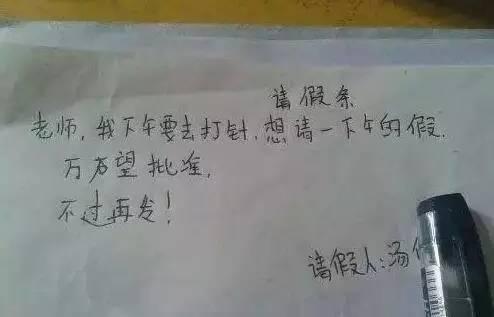 请假条
老师，我下午要去打针，想请一下午的假．
万万望批准，
不过再发！
请假人：汤